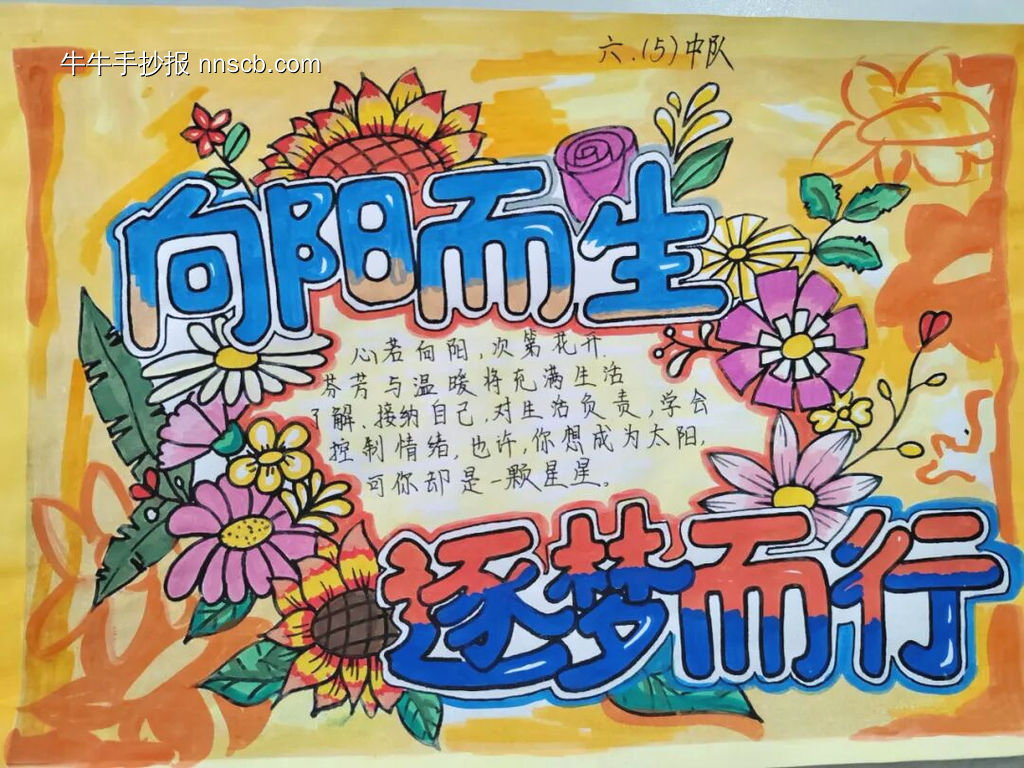 牛牛手抄报 nnscb.com
六.(5)中队
向阳而生
心若向阳,次第花开.
芬芳与温暖将充满生活
了解、接纳自己,对生活负责,学会
控制情绪,也许,你想成为太阳,
可你却是一颗星星。
逐梦而行